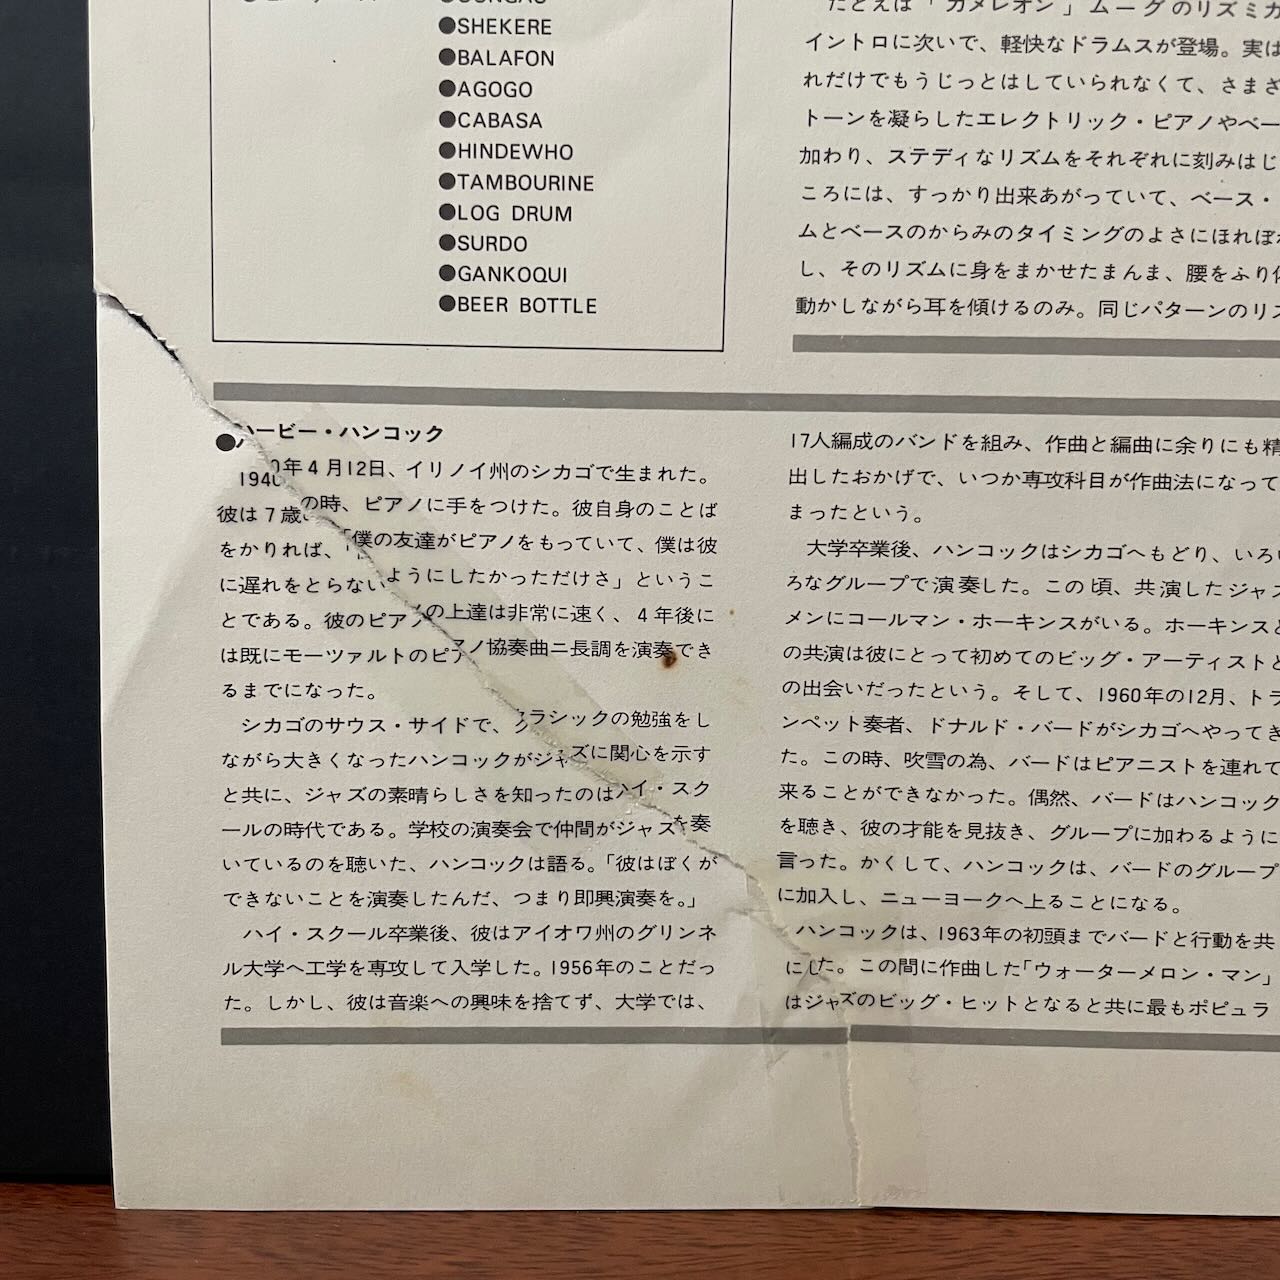 ●SHEKERE
●BALAFON
●AGOGO
●CABASA
●HINDEWHO
●TAMBOURINE
●LOG DRUM
●SURDO
●GANKOQUI
●BEER BOTTLE
たとえば「カメレオン」ムーグのリズミカ
イントロに次いで、軽快なドラムスが登場。実は
れだけでもうじっとはしていられなくて、さまざ
トーンを凝らしたエレクトリック・ピアノやベー
加わり、ステディなリズムをそれぞれに刻みはじ
ころには、すっかり出来あがっていて、ベース・
ムとベースのからみのタイミングのよさにほれぼれ
し、そのリズムに身をまかせたまんま、腰をふり体
動かしながら耳を傾けるのみ。同じパターンのリズ
●ハービー・ハンコック
1940年4月12日、イリノイ州のシカゴで生まれた。
彼は7歳の時、ピアノに手をつけた。彼自身のことば
をかりれば、「僕の友達がピアノをもっていて、僕は彼
に遅れをとらないようにしたかっただけさ」というこ
とである。彼のピアノの上達は非常に速く、4年後に
は既にモーツァルトのピアノ協奏曲ニ長調を演奏でき
るまでになった。
シカゴのサウス・サイドで、クラシックの勉強をし
ながら大きくなったハンコックがジャズに関心を示す
と共に、ジャズの素晴らしさを知ったのはハイ・スク
ールの時代である。学校の演奏会で仲間がジャズを奏
いているのを聴いた、ハンコックは語る。「彼はぼくが
できないことを演奏したんだ、つまり即興演奏を。」
ハイ・スクール卒業後、彼はアイオワ州のグリンネ
ル大学へ工学を専攻して入学した。1956年のことだっ
た。しかし、彼は音楽への興味を捨てず、大学では、
17人編成のバンドを組み、作曲と編曲に余りにも精
出したおかげで、いつか専攻科目が作曲法になって
まったという。
大学卒業後、ハンコックはシカゴへもどり、いろい
ろなグループで演奏した。この頃、共演したジャズ
メンにコールマン・ホーキンスがいる。ホーキンスと
の共演は彼にとって初めてのビッグ・アーティストと
の出会いだったという。そして、1960年の12月、トラ
ンペット奏者、ドナルド・バードがシカゴへやってき
た。この時、吹雪の為、バードはピアニストを連れて
来ることができなかった。偶然、バードはハンコック
を聴き、彼の才能を見抜き、グループに加わるように
言った。かくして、ハンコックは、バードのグループ
に加入し、ニューヨークへ上ることになる。
ハンコックは、1963年の初頭までバードと行動を共
にした。この間に作曲した「ウォーターメロン・マン」
はジャズのビッグ・ヒットとなると共に最もポピュラ